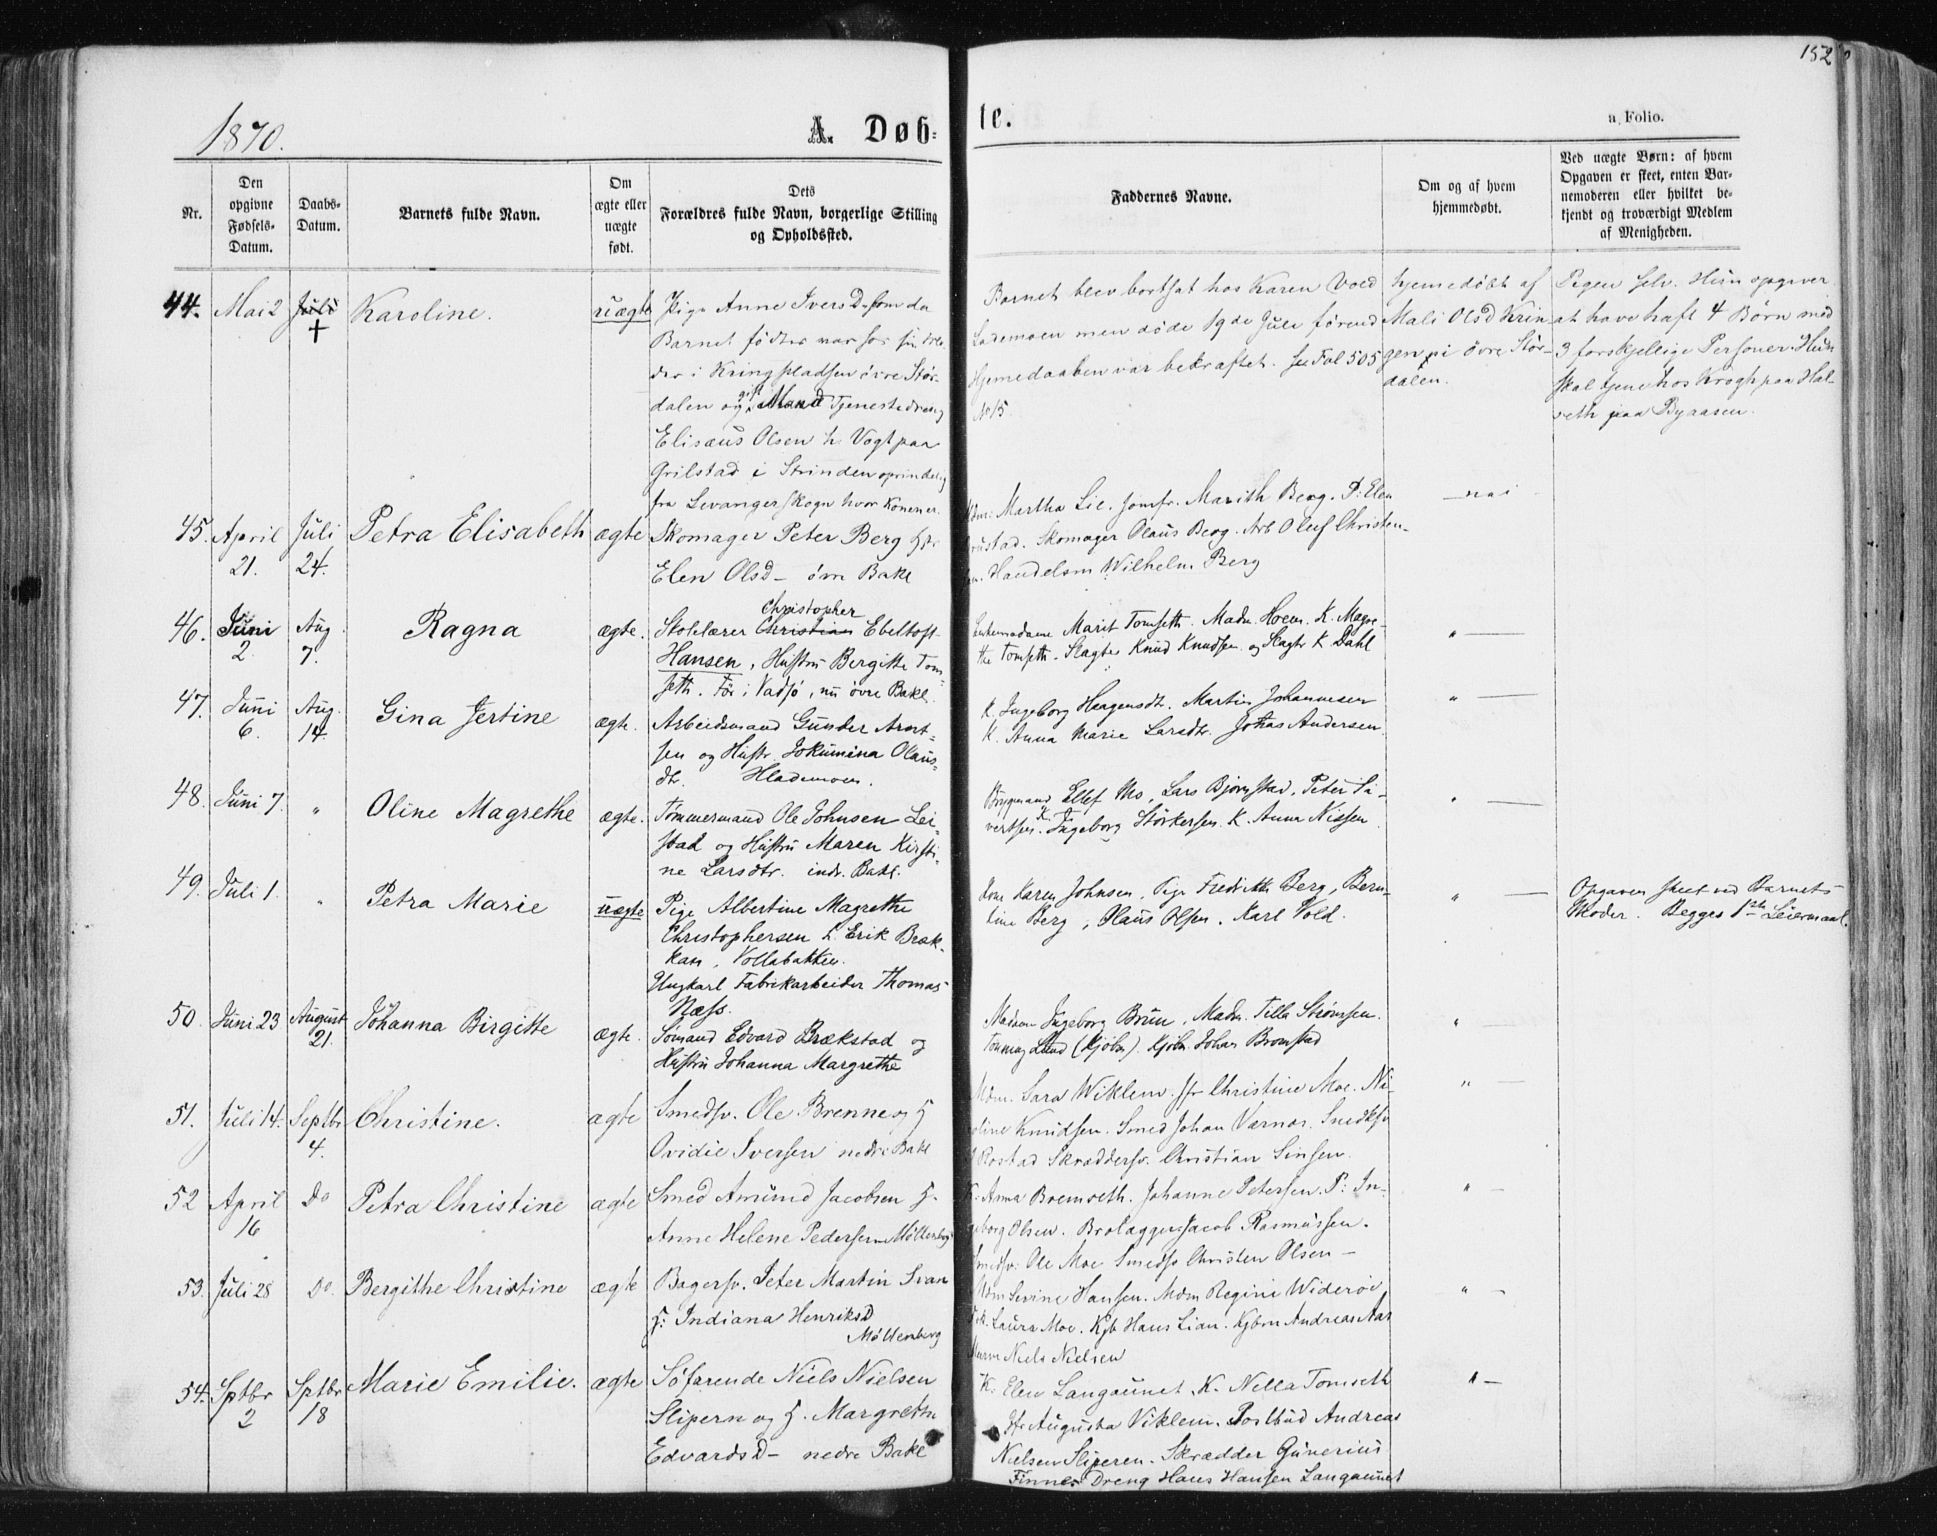 152
1870.
A. Døb-
te.
a, Folio.
Nr.
Den
opgivne
Fødsels-
Datum.
Daabs-
Datum.
Barnets fulde Navn.
Om
ægte eller
uægte
født.
Dets
Forældres fulde Navn, borgerlige Stilling
og Opholdssted.
Faddernes Navne.
Om og af hvem
hjemmedøbt.
Ved uægte Børn: af hvem
Opgaven er skeet, enten Bar-
nemoderen eller hvilket be-
kjendt og troværdigt Medlem
af Menigheden.
44. Mai 2 Juli
+
Karoline.
uægte
Pige Anne Ivers D. som da
Barnet fødtes var hos
der i Kringpladsen øvre Stør-
dalen og gift Mand Tjenestedreng
Elisæus Olsen h Vogt paa
Grilstad i Strinden oprindelig
fra Levanger Skogn hvor Konen er.
Barnet blev bortsat hos Karen Vold
Lademoen men døde 19de Juli førend
Hjemedaaben var bekræftet. se Fol 505
No 15.
hjemedøbt af
Mali Olsd Krin-
gen i øvre Stør-
dalen.
Pigen selv. Hun opgiver
at have haft 4 Børn med
3 forskjellige Personer. Hun
skal tjene hos Krogh paa Hal-
seth paa Byaasen.
45. April
21.
Juli
24.
Petra Elisabeth
ægte
Skomager Peter Berg
Elen Olsd - øvre Bakl
Martha Lie. Jomfr. Marith Berg. P: Elen
Skomager Olaus Berg. Arb Oluf Christen-
Handelsm Wilhelm Berg
nei
46. Juni
2.
Aug
7.
Ragna
ægte.
Christopher
Skolelærer Christian Ebeltoft
Hansen, Hustru Bergitte Tom-
seth. Før i Vadsö, nu øvre Bakl.
Marit Tomseth. Madm. Hoem. K. Magre-
the Tomseth. Slagter Knud Knudsen og Slagtr K Dahl
"
47. Juni
6.
Aug.
14.
Gina Jertine
ægte.
Arbeidsmand Gunder Arnt-
sen og Hustr. Jokumina Olaus-
dtr. Hlademoen.
K. Ingeborg Haagensdt. Martin Johannesen
K. Anna Marie Larsdtr. Johas Andersen.
"
48. Juni 7. "
Oline Magrethe
ægte.
Tømmermand Ole Johnsen Lei-
stad og Hustru Maren Kirsti-
ne Larsdtr. indr. Bakl.
Ellef Mo, Lars Bjørnstad, Peter Si-
vertsen. K Ingeborg Størkersen. K. Anna Nissen
"
49. Juli 1. "
Petra Marie
uægte
Pige Albertine Magrethe
Christophersen h. Erik Bræk-
kan, Vollabakken.
Ungkarl Fabrikarbeider Thomas
Næss.
Karen Johnsen, Pige Fredrikke Berg, Bern-
tine Berg, Olaus Olsen. Karl Vold.
"
Opgaven skeet ved Barnets
Moder. Begges 1ste Leiermaal.
50. Juni 23
August
21.
Johanna Birgitte
ægte.
Sømand Edvard Brækstad og
Hustru Johanna Margrethe
Madam Ingeborg Brun, Madm. Tilla Strømsen.
Tommy Lund (Kjøbm). Kjøbm. Johan Bromstad
"
51. Juli 14. Septbr
4.
Christine.
ægte
Smedsv. Ole Brenne og H
Ovidie Iversen nedre Bakl
Mdm. Sara Wiklem. Jfr Christine Moe. Ni-
oline Knudsen. Smed Johan Værnæs. Snedksv
Rostad Skræddersv. Christian Sinsen.
"
52 April
16
Do
Petra Christine
ægte
Smed Amund Jacobsen H.
Anne Helene Pedersen Møllenbg
K. Anna Bremseth. Johanne Petersen. P: In-
geborg Olsen. Brolægger Jacob Rasmussen.
Smedsv. Ole Moe Smedsv Christen Olsen -
"
53. Juli 28 Do.
Bergithe Christine
ægte
Bagersv. Peter Martin Svan
H: Indiana Henriksd
Møllenberg
Mdm Sevine Hansen. Mdm Regine Widerøe
Laura Moe. Kjb Hans Lian. Kjbm Andreas Aas
Niels Nielsen
"
54. Sptbr
2
Sptbr
18
Marie Emilie.
ægte
Søfarende Niels Nielsen
Slipern og H. Margrethe
Edvards D - nedre Bakl
K: Elen Langaunet. K. Nella Tomseth
Jfr Augusta Viklem. Postbud Andreas
Nielsen Sliperen. Skrædder Gunerius
Finnes Dreng Hans Hansen Langaunet
"